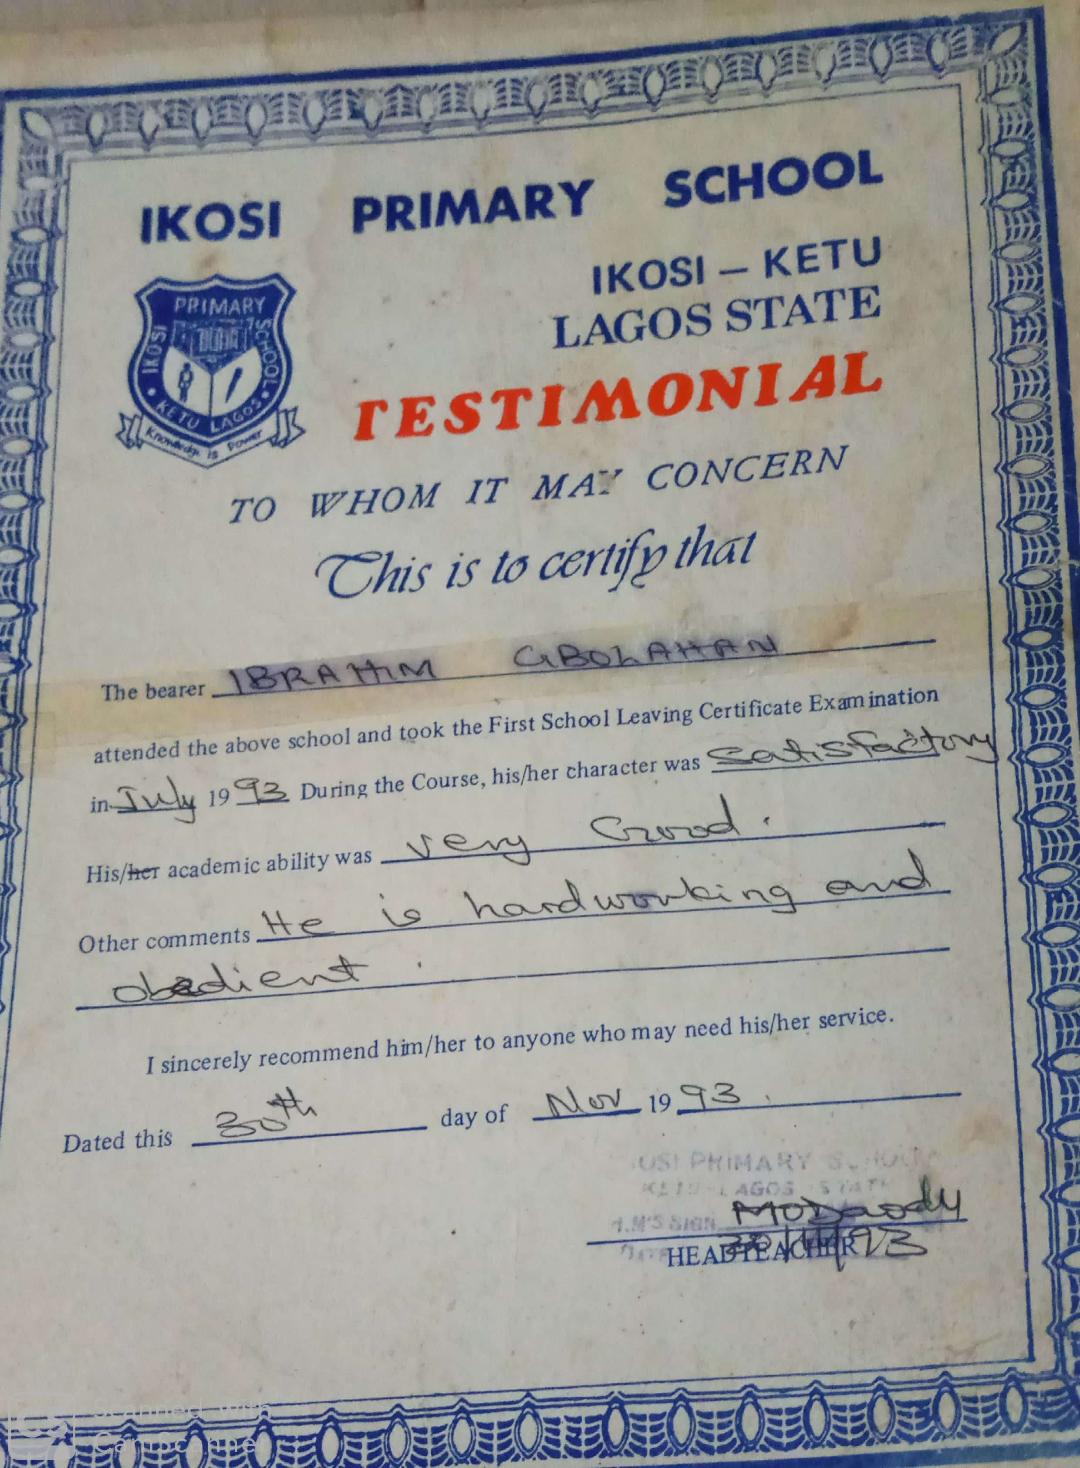 IKOSI PRIMARY SCHOOL
IKOSI – KETU
LAGOS STATE
PRIMARY
IKOSI
SCHOOL
KETU LAGOS
Knowledge is Power
TESTIMONIAL
TO WHOM IT MAY CONCERN
This is to certify that
The bearer IBRAHIM GBOLAHAN
attended the above school and took the First School Leaving Certificate Examination
in July 1993 During the Course, his/her character was Satisfactory
His/her academic ability was very Good.
Other comments He is hardworking and
obedient.
I sincerely recommend him/her to anyone who may need his/her service.
Dated this 30th day of Nov 1993.
PRIMARY SCHOOL
LAGOS STATE
H.M'S SIGN
30/11/93
HEADTEACHER
Scanned with
CamScanner